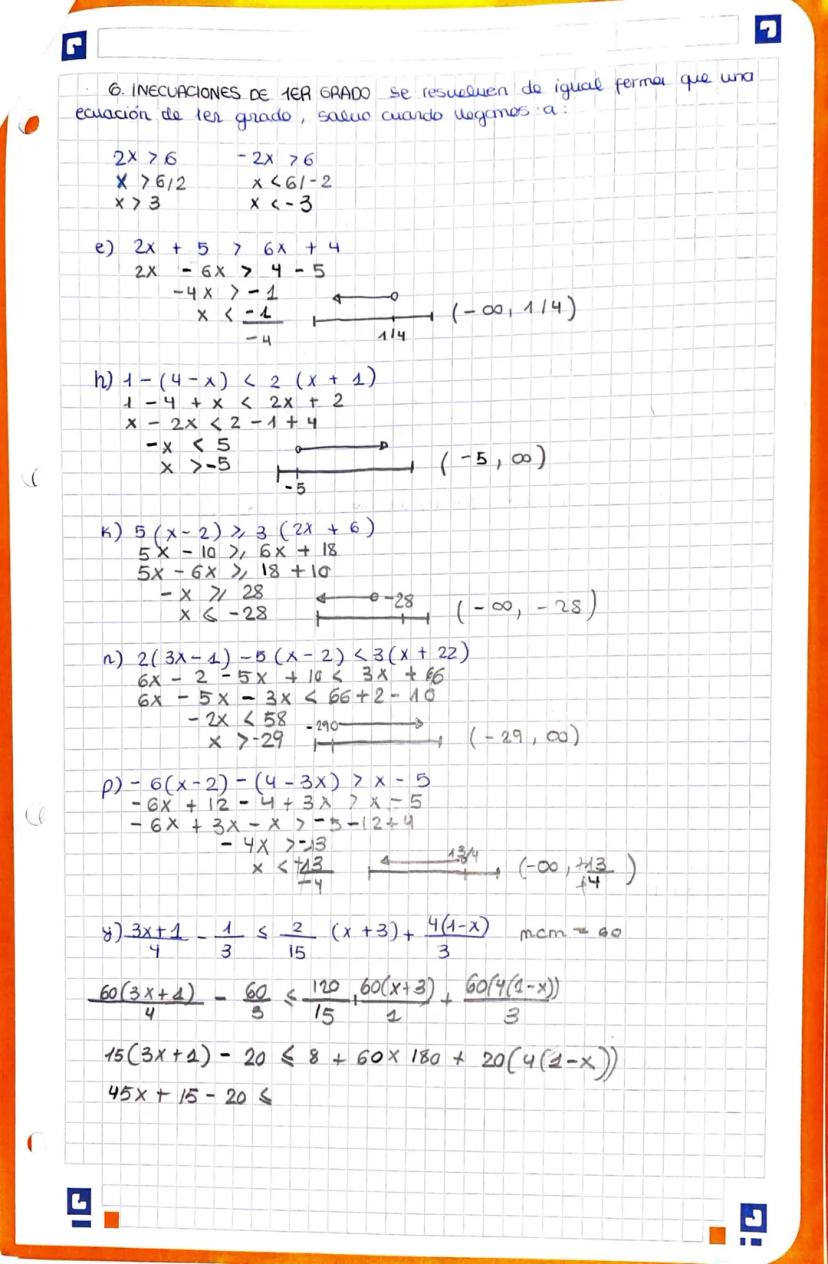 6. INECUACIONES DE 1ER GRADO se resuelven de igual forma que una
ecuación de 1er grado, salvo cuando llegamos a:
2x > 6 -2x > 6
x > 6/2 x < 6/-2
x > 3 x < -3
e) 2x + 5 > 6x + 4
2x - 6x > 4 - 5
-4x > -1
x < -1/-4 1/4 (-∞, 1/4)
h) 1 - (4 - x) < 2 (x + 1)
1 - 4 + x < 2x + 2
x - 2x < 2 - 1 + 4
-x < 5
x > -5 -5 (-5, ∞)
k) 5 (x - 2) ≥ 3 (2x + 6)
5x - 10 ≥ 6x + 18
5x - 6x ≥ 18 + 10
-x ≥ 28
x ≤ -28 -28 (-∞, -28)
n) 2(3x - 1) - 5 (x - 2) < 3(x + 22)
6x - 2 - 5x + 10 < 3x + 66
6x - 5x - 3x < 66 + 2 - 10
-2x < 58
x > -29 -29 (-29, ∞)
p) - 6(x - 2) - (4 - 3x) > x - 5
-6x + 12 - 4 + 3x > x - 5
-6x + 3x - x > -5 - 12 + 4
-4x > -13
x < +13/-4 13/4 (-∞, +13/+4)
y) 3x+1/4 - 1/3 ≤ 2/15 (x + 3) + 4(1-x)/3 mcm = 60
60(3x+1)/4 - 60/3 ≤ 120/15 + 60(x+3)/1 + 60(4(1-x))/3
15(3x+1) - 20 ≤ 8 + 60x 180 + 20(4(1-x))
45x + 15 - 20 ≤